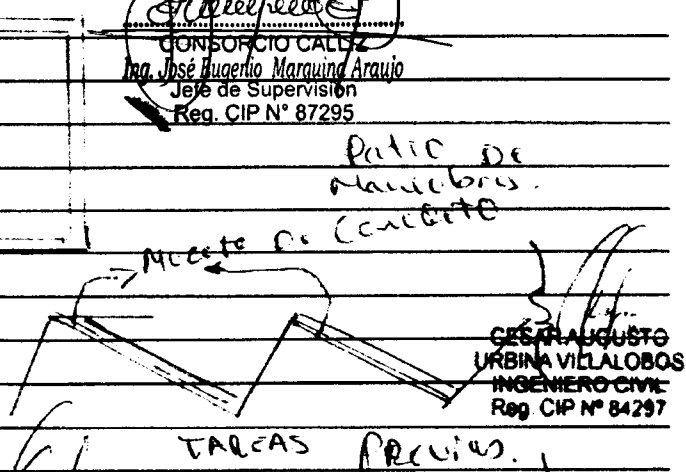 CONSORCIO CALLIZ
Ing. José Eugenio Marquina Araujo
Jefe de Supervisión
Reg. CIP N° 87295
Patio De
Maniobras.
De Concreto
CESAR AUGUSTO
URBINA VILLALOBOS
INGENIERO CIVIL
Reg. CIP Nº 84297
TAREAS PREVIAS.